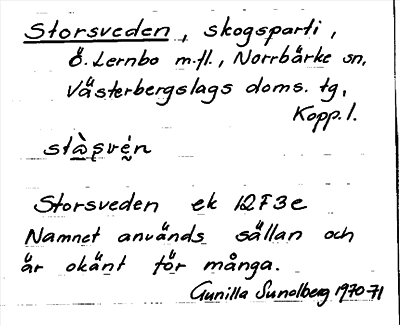 Storsveden, skogsparti,
Ö. Lernbo m.fl., Norrbärke sn,
Västerbergslags doms. tg,
Kopp. l.
Storsveden ek 12F3e
Namnet används sällan och
är okänt för många.
Gunilla Sundberg 1970-71